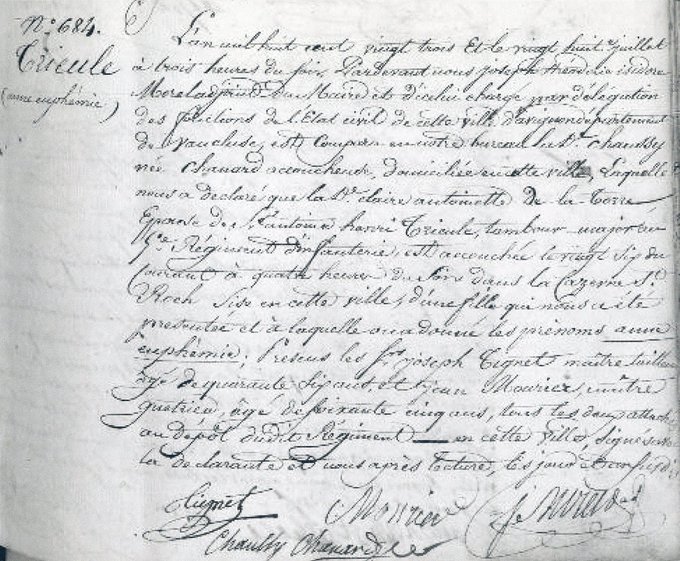 N.º 684.
Tricule
(anne euphémie)
L'an mil huit cent vingt trois Et le vingt huit juillet
à trois heures du soir, Pardevant nous joseph isidore
Morel adjoint Du Maire et d'icelui chargé par délégation
des fonctions de l'Etat civil de cette ville d'avignon département
de vaucluse, est Comparu en notre bureau la D.e Chaussy
née Chanard accoucheuse, domiciliée en cette ville, Laquelle
nous a déclaré que la D.e claire antoinette de la Torre
Epouse de S.r antoine Tricule, tambour-major au
5.e Régiment d'infanterie, est accouchée le vingt six du
Courant à quatre heures Du soir dans la Cazerne S.t
Roch Sise en cette ville, d'une fille qui nous a été
présentée et à laquelle on a donné les prénoms anne
euphémie; Présens les S.rs joseph Tignet maître tailleur
âgé de quarante six ans, et jean Mourier, maître
guetrier, âgé de soixante cinq ans, tous les deux attachés
au dépôt dudit Régiment en cette ville, signés avec
la déclarante et nous après lecture, les jour et an susdits
Tignet Mourier Morel adj
Chaussy Chanard